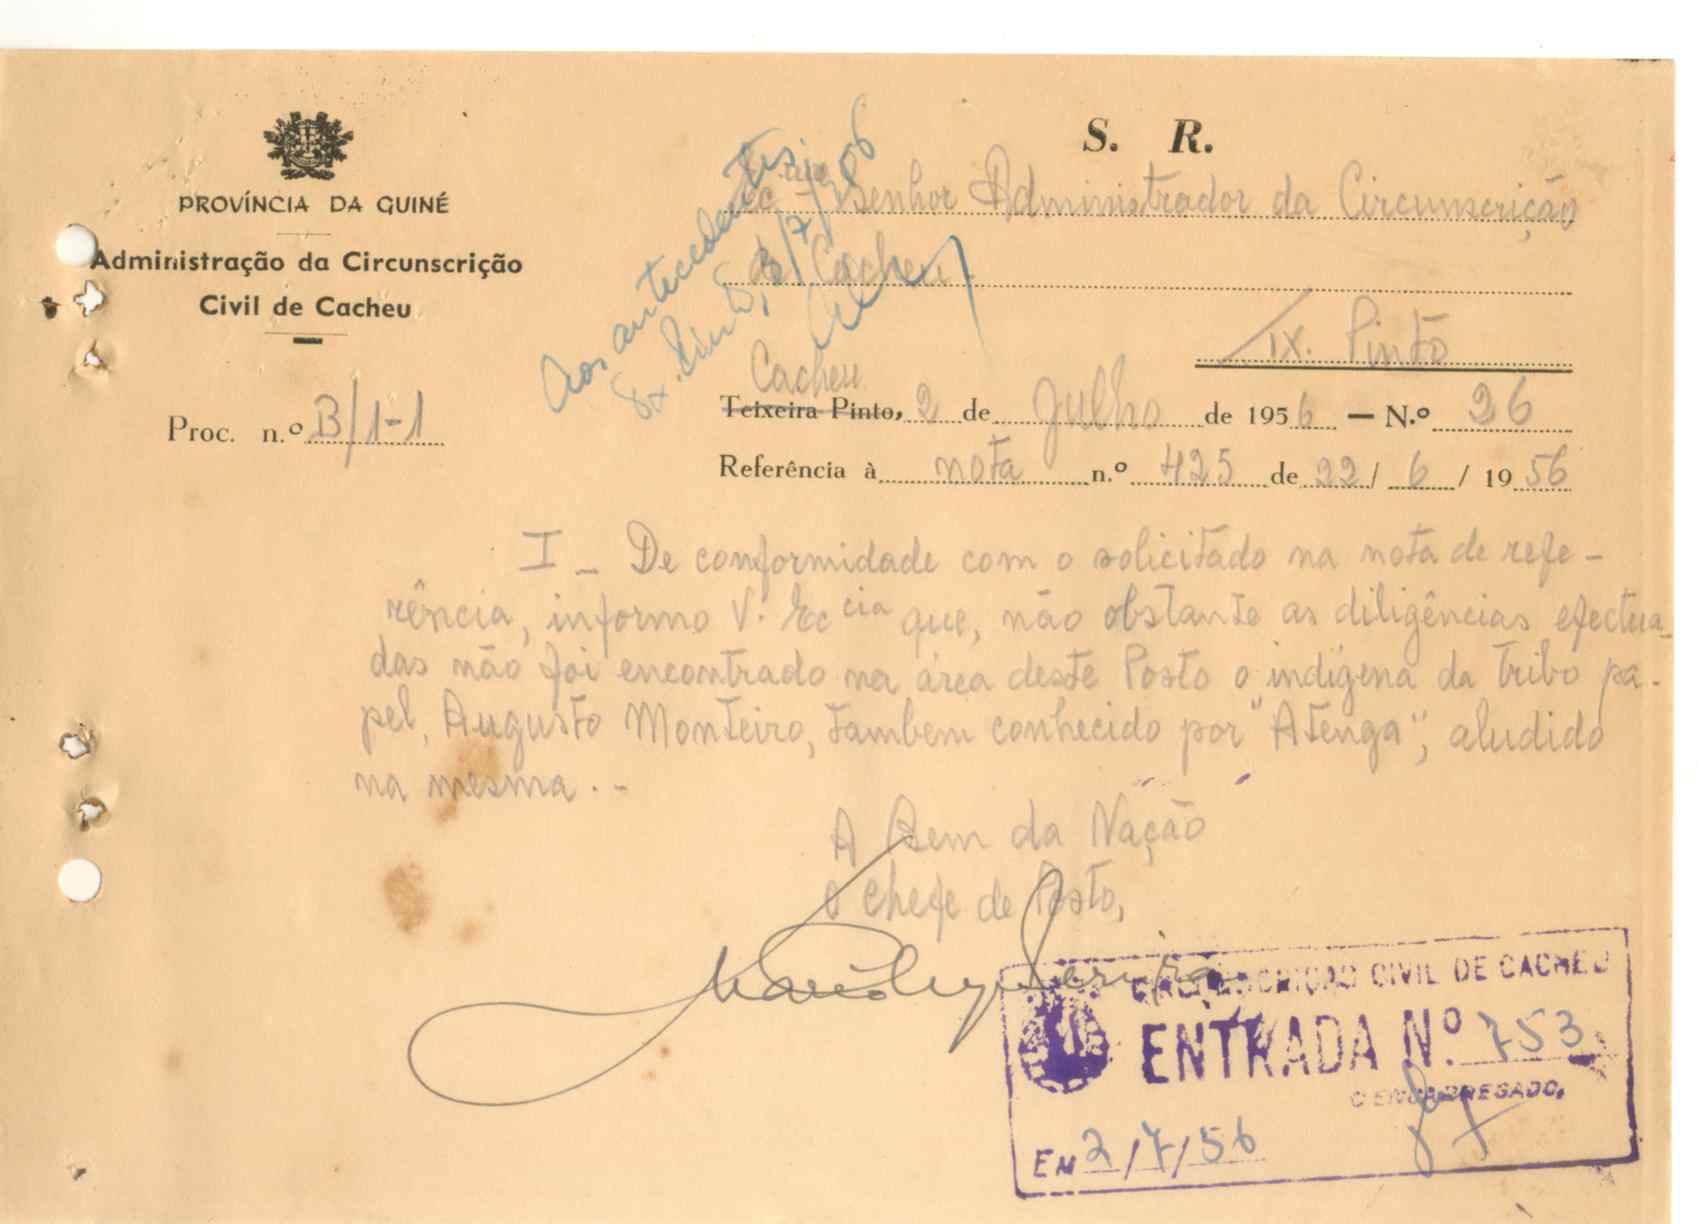 S. R.
PROVÍNCIA DA GUINÉ
Administração da Circunscrição
Civil de Cacheu
Proc. n.º B/1-1
Aos antecedentes
3/7/56
Senhor Administrador da Circunscrição
de Cacheu.
Tx. Pinto
Cacheu
Teixeira Pinto, 2 de Julho de 1956 — N.º 26
Referência à nota n.º 425 de 22/ 6 / 1956
I - De conformidade com o solicitado na nota de refe-
rência, informo V. Ec cia que, não obstante as diligências efectua-
das não foi encontrado na área deste Posto o indígena da tribo pa-
pel, Augusto Monteiro, tambem conhecido por "Atenga", aludido
na mesma.-
A Bem da Nação
O Chefe de Posto,
CIRCUNSCRIÇÃO CIVIL DE CACHEU
ENTRADA N.º 753
O ENCARREGADO,
EM 2/7/56